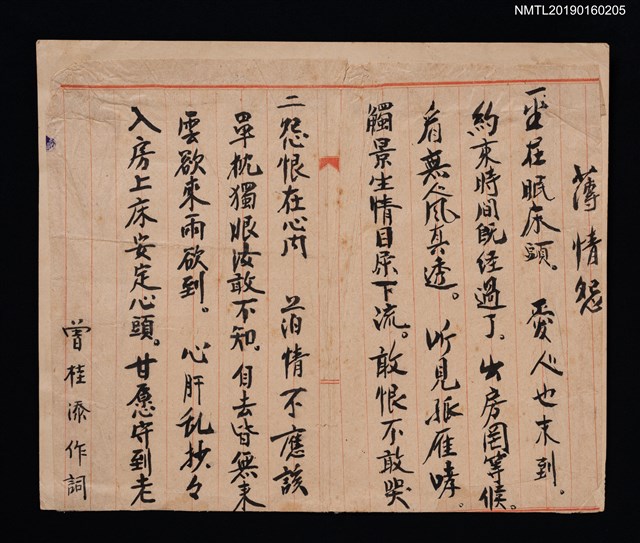 NMTL20190160205
薄情怨
一 坐在眠床頭。愛人也未到。
約束時間既經過了。出房門等候。
看無人風真透。听見孤雁哮。
觸景生情目屎下流。敢恨不敢哭
二 怨恨在心内 薄情不應該
單枕獨眠汝敢不知。自去皆無來
雲欲來雨欲到。心肝乱抄々
入房上床安定心頭。甘愿守到老
曾桂添作詞